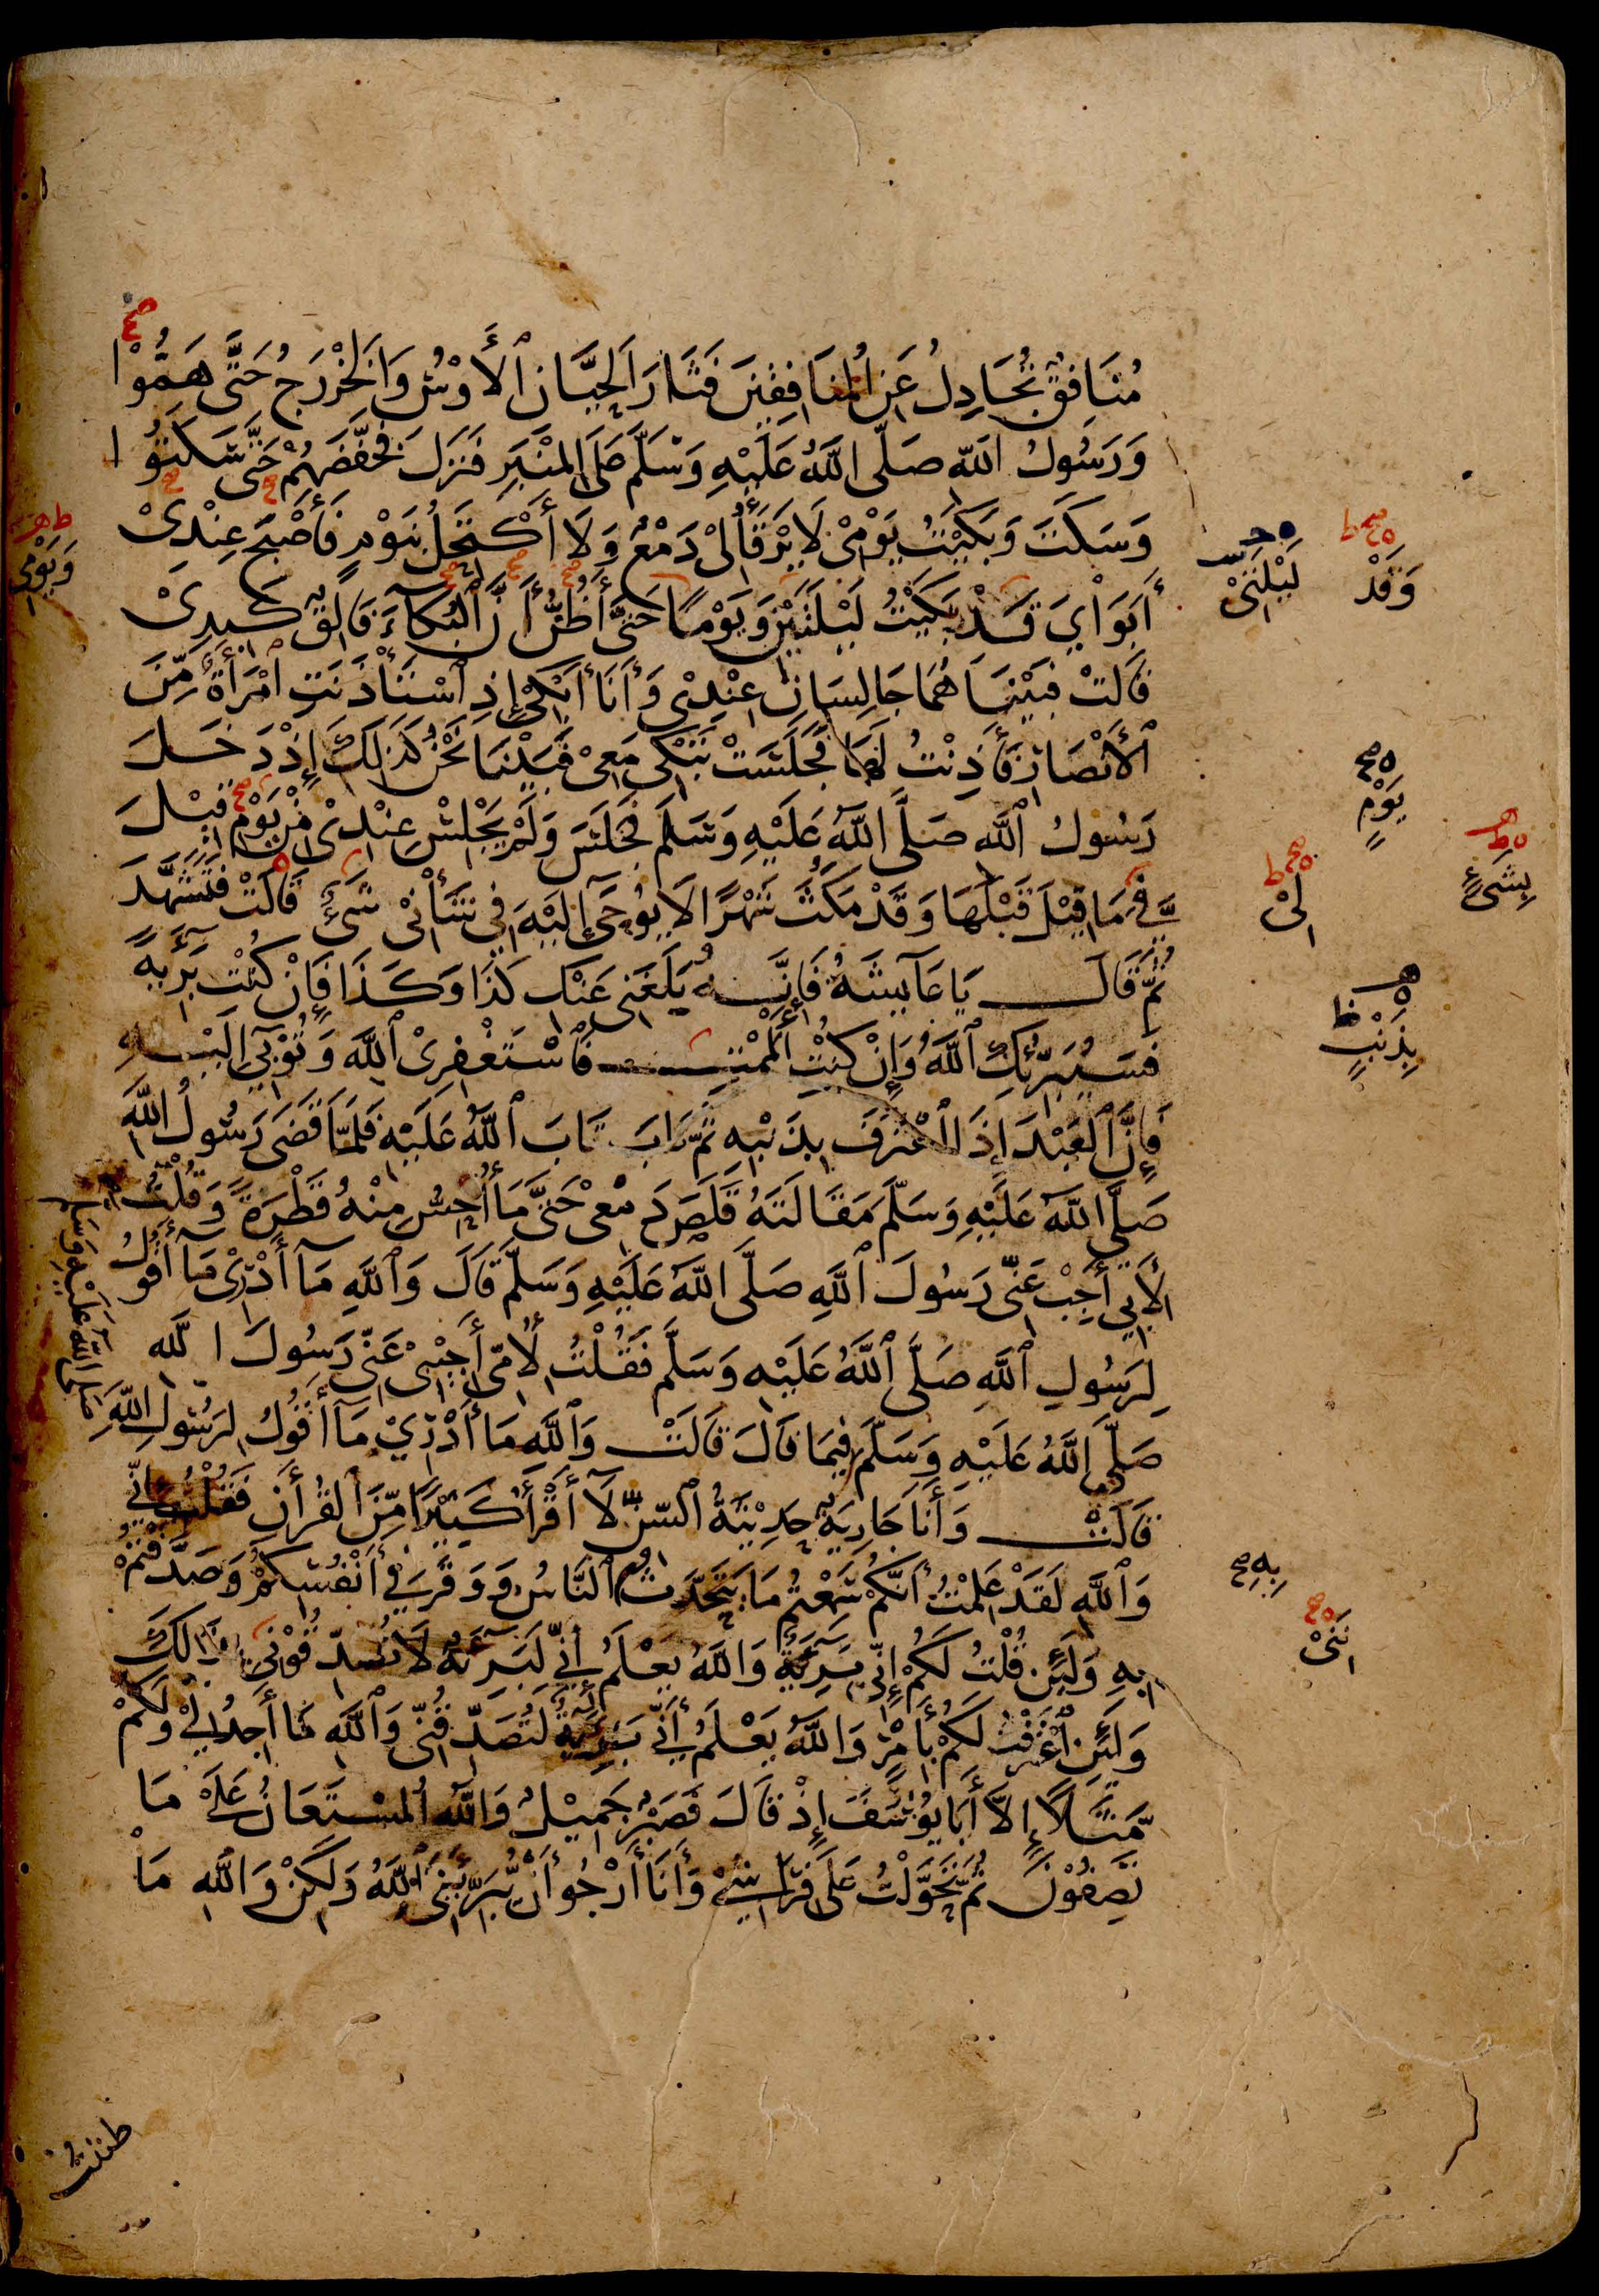 مُنَافِقٌ تُجَادِلُ عَنِ الْمُنَافِقِينَ فَثَارَ الْحَيَّانِ ٱلْأَوْسُ وَالْخَزْرَجُ حَتَّى هَمُّوْا
وَرَسُولُ اللهِ صَلَّى اللَّهُ عَلَيْهِ وَسَلَّمَ عَلَى الْمِنْبَرِ فَنَزَلَ فَخَفَّضَهُمْ حَتَّى سَكَتُوا
وَسَكَتَ وَبَكَيْتُ يَوْمِيْ لَا يَرْقَأُ لِيْ دَمْعٌ وَلَا أَكْتَحِلُ بِنَوْمٍ فَأَصْبَحَ عِنْدِيْ
أَبَوَايَ قَدْ بَكَيْتُ لَيْلَتَيْنِ وَيَوْمًا حَتَّى أَظُنُّ أَنَّ ٱلْبُكَآءَ فَالِقٌ كَبِدِيْ
قَالَتْ فَبَيْنَا هُمَا جَالِسَانِ عِنْدِيْ وَأَنَا أَبْكِيْ إِذِ ٱسْتَأْذَنَتِ ٱمْرَأَةٌ مِّنَ
ٱلْأَنْصَارِ فَأَذِنْتُ لَهَا فَجَلَسَتْ تَبْكِيْ مَعِيْ فَبَيْنَا نَحْنُ كَذٰلِكَ إِذْ دَخَلَ
رَسُولُ ٱللَّهِ صَلَّى اللَّهُ عَلَيْهِ وَسَلَّمَ فَجَلَسَ وَلَمْ يَجْلِسْ عِنْدِيْ مِنْ يَوْمِ قِيْلَ
فِيَّ مَا قِيْلَ قَبْلَهَا وَقَدْ مَكَثَ شَهْرًا لَا يُوحَى إِلَيْهِ فِي شَأْنِيْ شَيْءٌ قَالَتْ فَتَشَهَّدَ
ثُمَّ قَالَ يَا عَآيِشَةُ فَإِنَّهُ بَلَغَنِي عَنْكِ كَذَا وَكَذَا فَإِنْ كُنْتِ بَرِيَّةً
فَسَيُبَرِّئُكِ ٱللَّهُ وَإِنْ كُنْتِ أَلْمَمْتِ فَٱسْتَغْفِرِيْ ٱللَّهَ وَتُوْبِيْ إِلَيْهِ
فَإِنَّ ٱلْعَبْدَ إِذَا ٱعْتَرَفَ بِذَنْبِهِ ثُمَّ تَابَ تَابَ ٱللَّهُ عَلَيْهِ فَلَمَّا قَضَى رَسُولُ اللَّهِ
صَلَّى اللَّهُ عَلَيْهِ وَسَلَّمَ مَقَالَتَهُ قَلَصَ دَمْعِيْ حَتَّى مَا أُحِسُّ مِنْهُ قَطْرَةً وَقُلْتُ
لِأَبِي أَجِبْ عَنِّي رَسُولَ ٱللَّهِ صَلَّى اللَّهُ عَلَيْهِ وَسَلَّمَ قَالَ وَٱللَّهِ مَآ أَدْرِيْ مَآ أَقُولُ
لِرَسُولِ ٱللَّهِ صَلَّى ٱللَّهُ عَلَيْهِ وَسَلَّمَ فَقُلْتُ لِأُمِّي أَجِيْبِيْ عَنِّي رَسُولَ اللَّهِ
صَلَّى اللَّهُ عَلَيْهِ وَسَلَّمَ فِيمَا قَالَ قَالَتْ وَٱللَّهِ مَا أَدْرِيْ مَآ أَقُولُ لِرَسُولِ اللَّهِ
صلى الله عَلَيْهِ وَسَلَّمَ
قَالَتْ وَأَنَا جَارِيَةٌ حَدِيْثَةُ ٱلسِّنِّ لَآ أَقْرَأُ كَثِيْرًا مِّنَ ٱلْقُرْأٰنِ فَقُلْتُ إِنِّي
وَٱللَّهِ لَقَدْ عَلِمْتُ أَنَّكُمْ سَمِعْتُمْ مَا يَتَحَدَّثُ ٱلنَّاسُ وَوَقَرَ فِي أَنْفُسِكُمْ وَصَدَّقْتُمْ
بِهِ وَلَئِنْ قُلْتُ لَكُمْ إِنِّي بَرِيَّةٌ وَاللَّهُ يَعْلَمُ إِنِّي لَبَرِيَّةٌ لَا تُصَدِّقُوْنِيْ بِذَالِكَ
وَلَئِنِ ٱعْتَرَفْتُ لَكُمْ بِأَمْرٍ وَاللَّهُ يَعْلَمُ أَنِّي بَرِيَّةٌ لَتُصَدِّقُنِّي وَٱللَّهِ مَا أَجِدُ لِيْ وَلَكُمْ
مَّثَلًا إِلَّا أَبَا يُوْسُفَ إِذْ قَالَ فَصَبْرٌ جَمِيْلٌ وَٱللَّهُ ٱلْمُسْتَعَانُ عَلَى مَا
تَصِفُوْنَ ثُمَّ تَحَوَّلْتُ عَلَى فِرَاشِيْ وَأَنَا أَرْجُو أَنْ يُّبَرِّئَنِي اللَّهُ وَلَكِنْ وَاللَّهِ مَا
وَقَدْ
لَيْلَتِيْ
وَيَوْمِيْ
يَوْمٍ
لِيْ
بِشَيْءٍ
بِذَنْبٍ
بِهِ
نَنِيْ
ظننت